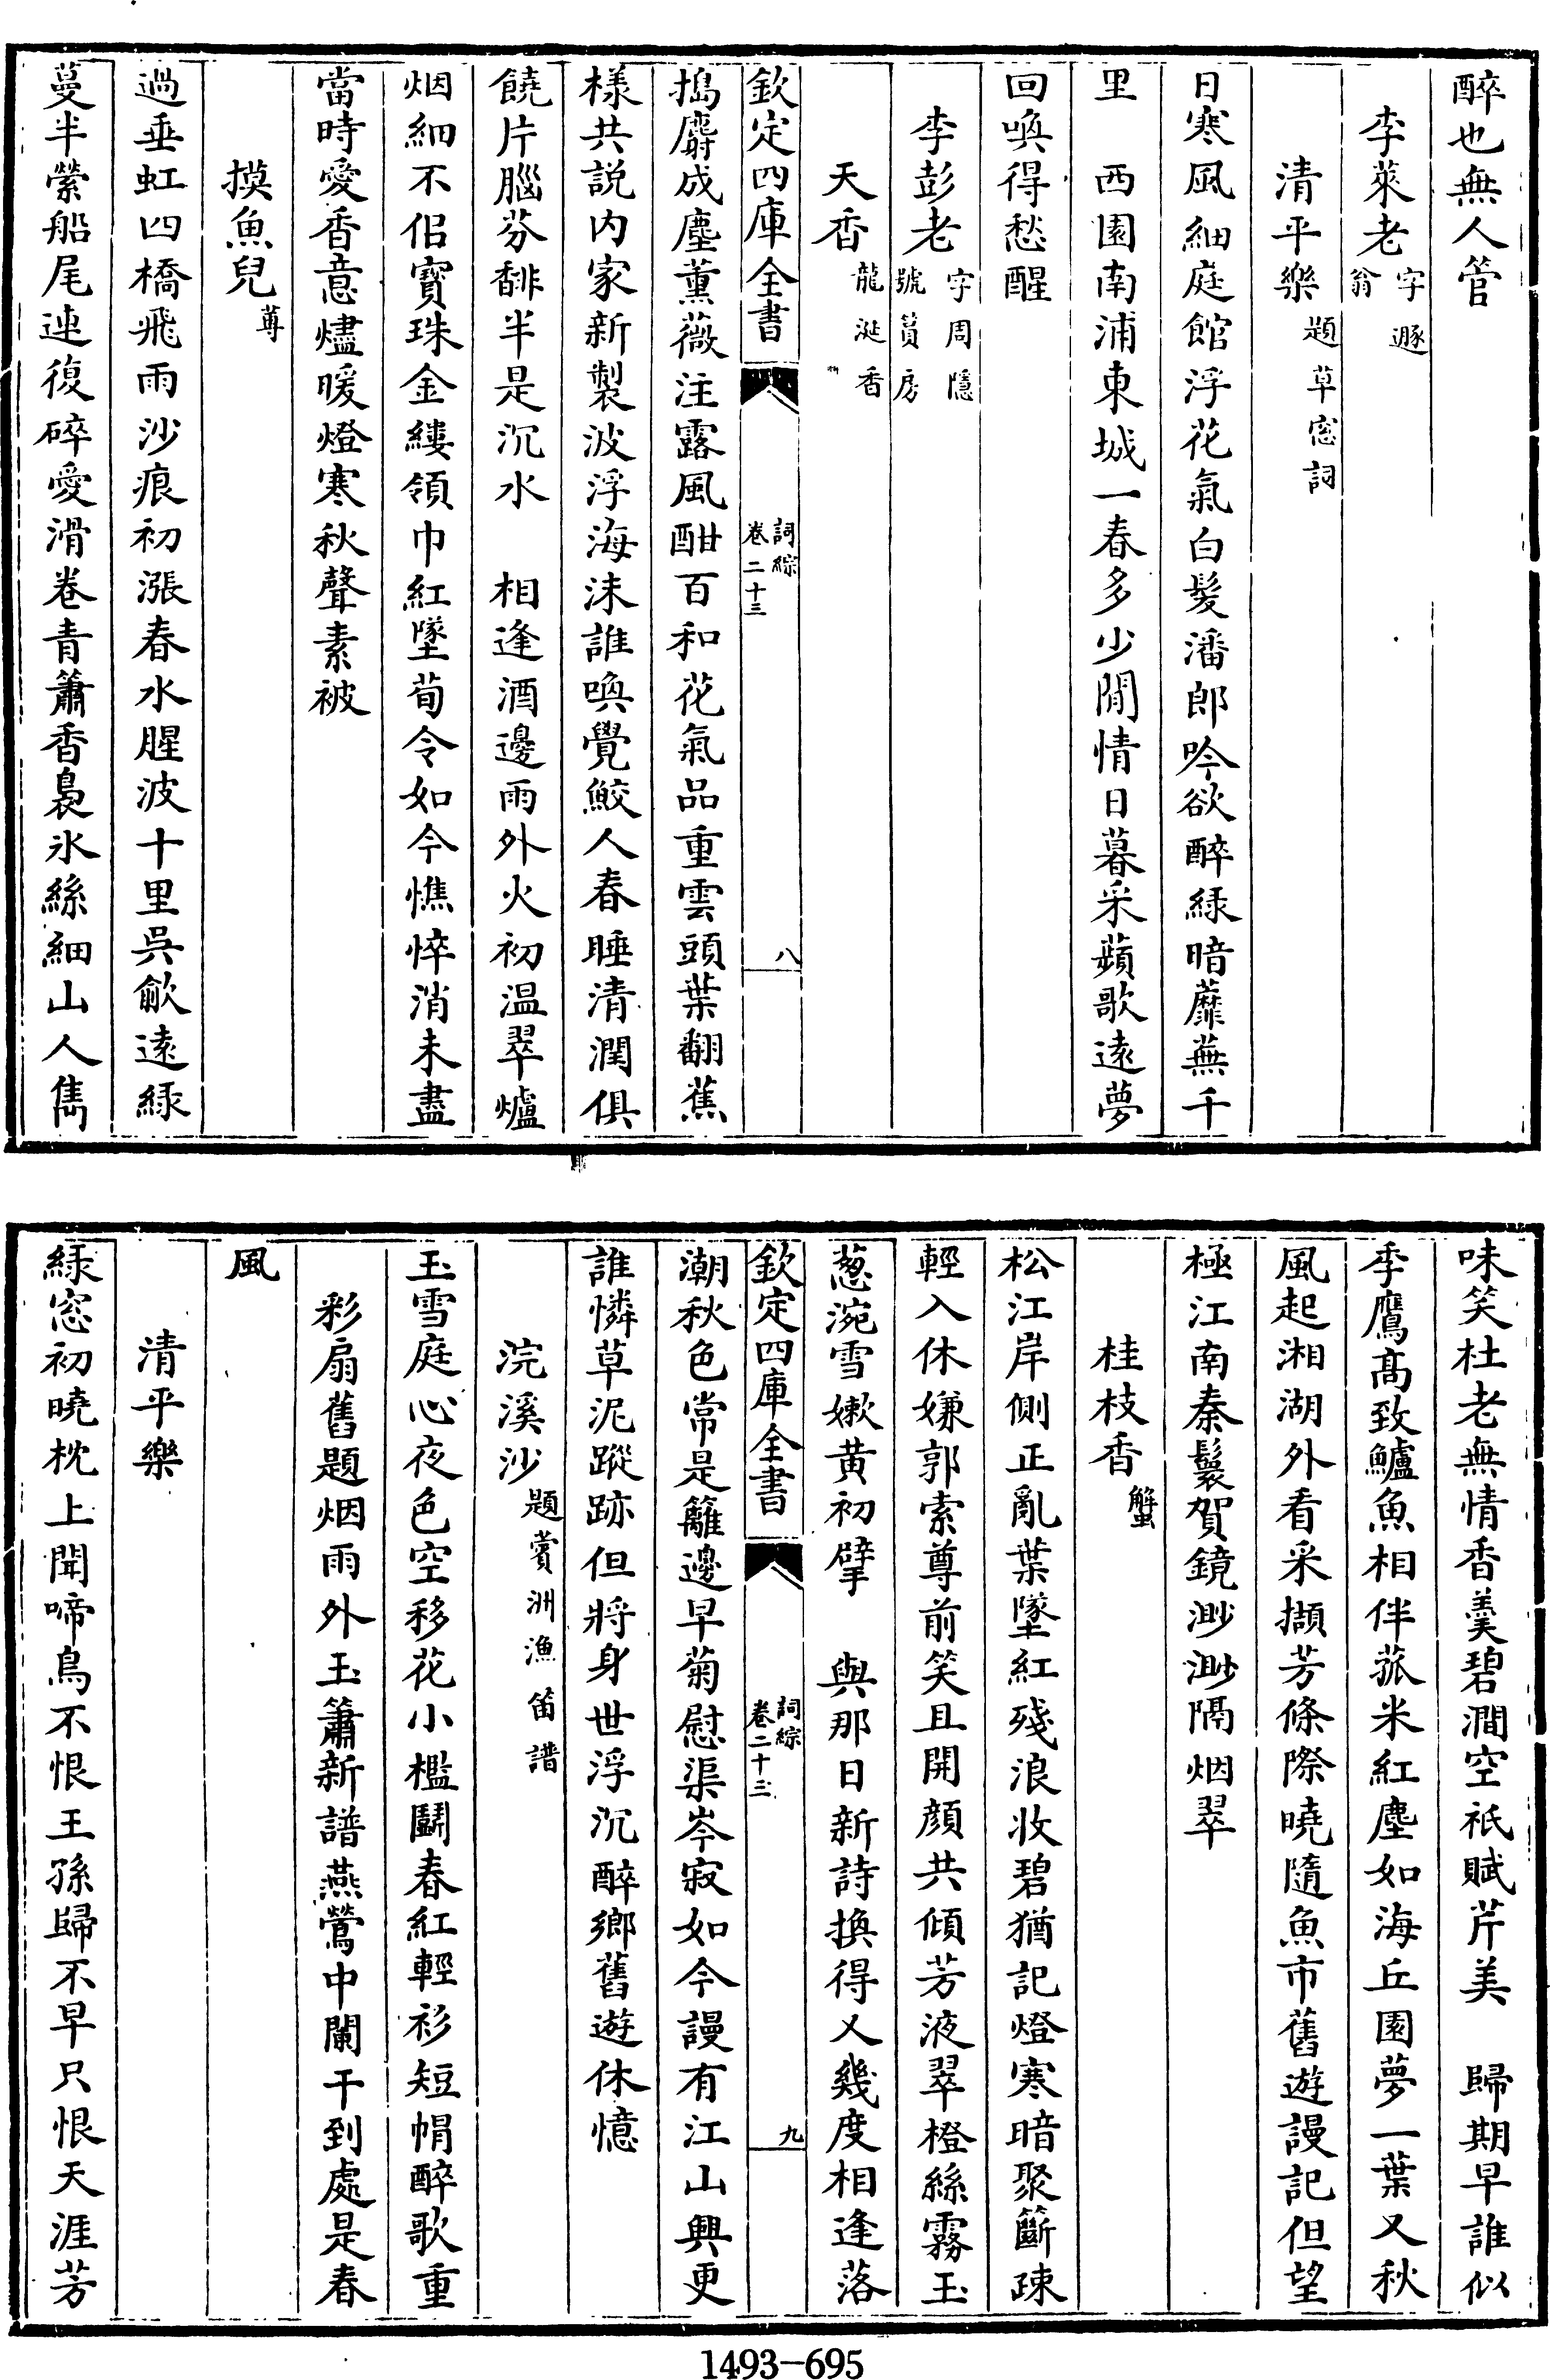 醉也無人管
李萊老字遯翁
清平樂題草窗詞
日寒風細庭館浮花氣白髮潘郎吟欲醉綠暗蘼蕪千
里　西園南浦東城一春多少閒情日暮采蘋歌遠夢
回喚得愁醒
李彭老字周隱號篔房
天香龍涎香
欽定四庫全書　詞綜卷二十三　八
搗麝成塵薰薇注露風酣百和花氣品重雲頭葉翻蕉
樣共說內家新製波浮海沫誰喚覺鮫人春睡清潤俱
饒片腦芬馡半是沉水　相逢酒邊雨外火初温翠爐
烟細不侶寶珠金縷領巾紅墜荀令如今憔悴消未盡
當時愛香意燼暖燈寒秋聲素被
摸魚兒蓴
過垂虹四橋飛雨沙痕初漲春水腥波十里吳歈遠綠
蔓半縈船尾連復碎愛滑卷青簫香裊氷絲細山人雋
味笑杜老無情香羹碧澗空祇賦芹美　歸期早誰似
季鷹高致鱸魚相伴菰米紅塵如海丘園夢一葉又秋
風起湘湖外看采擷芳條際曉隨魚市舊遊謾記但望
極江南秦鬟賀鏡渺渺隔烟翠
桂枝香蟹
松江岸側正亂葉墜紅殘浪收碧猶記燈寒暗聚籪疎
輕入休嫌郭索尊前笑且開顔共傾芳液翠橙絲霧玉
葱涴雪嫰黃初擘　與那日新詩換得又幾度相逢落
欽定四庫全書　詞綜卷二十三　九
潮秋色常是籬邊早菊慰渠岑寂如今謾有江山興更
誰憐草泥蹤跡但將身世浮沉醉鄉舊遊休憶
浣溪沙題蘋洲漁笛譜
玉雪庭心夜色空移花小檻鬭春紅輕衫短帽醉歌重
彩扇舊題烟雨外玉簫新譜燕鶯中闌干到處是春
風
清平樂
綠窓初曉枕上聞啼鳥不恨王孫歸不早只恨天涯芳
1493-695